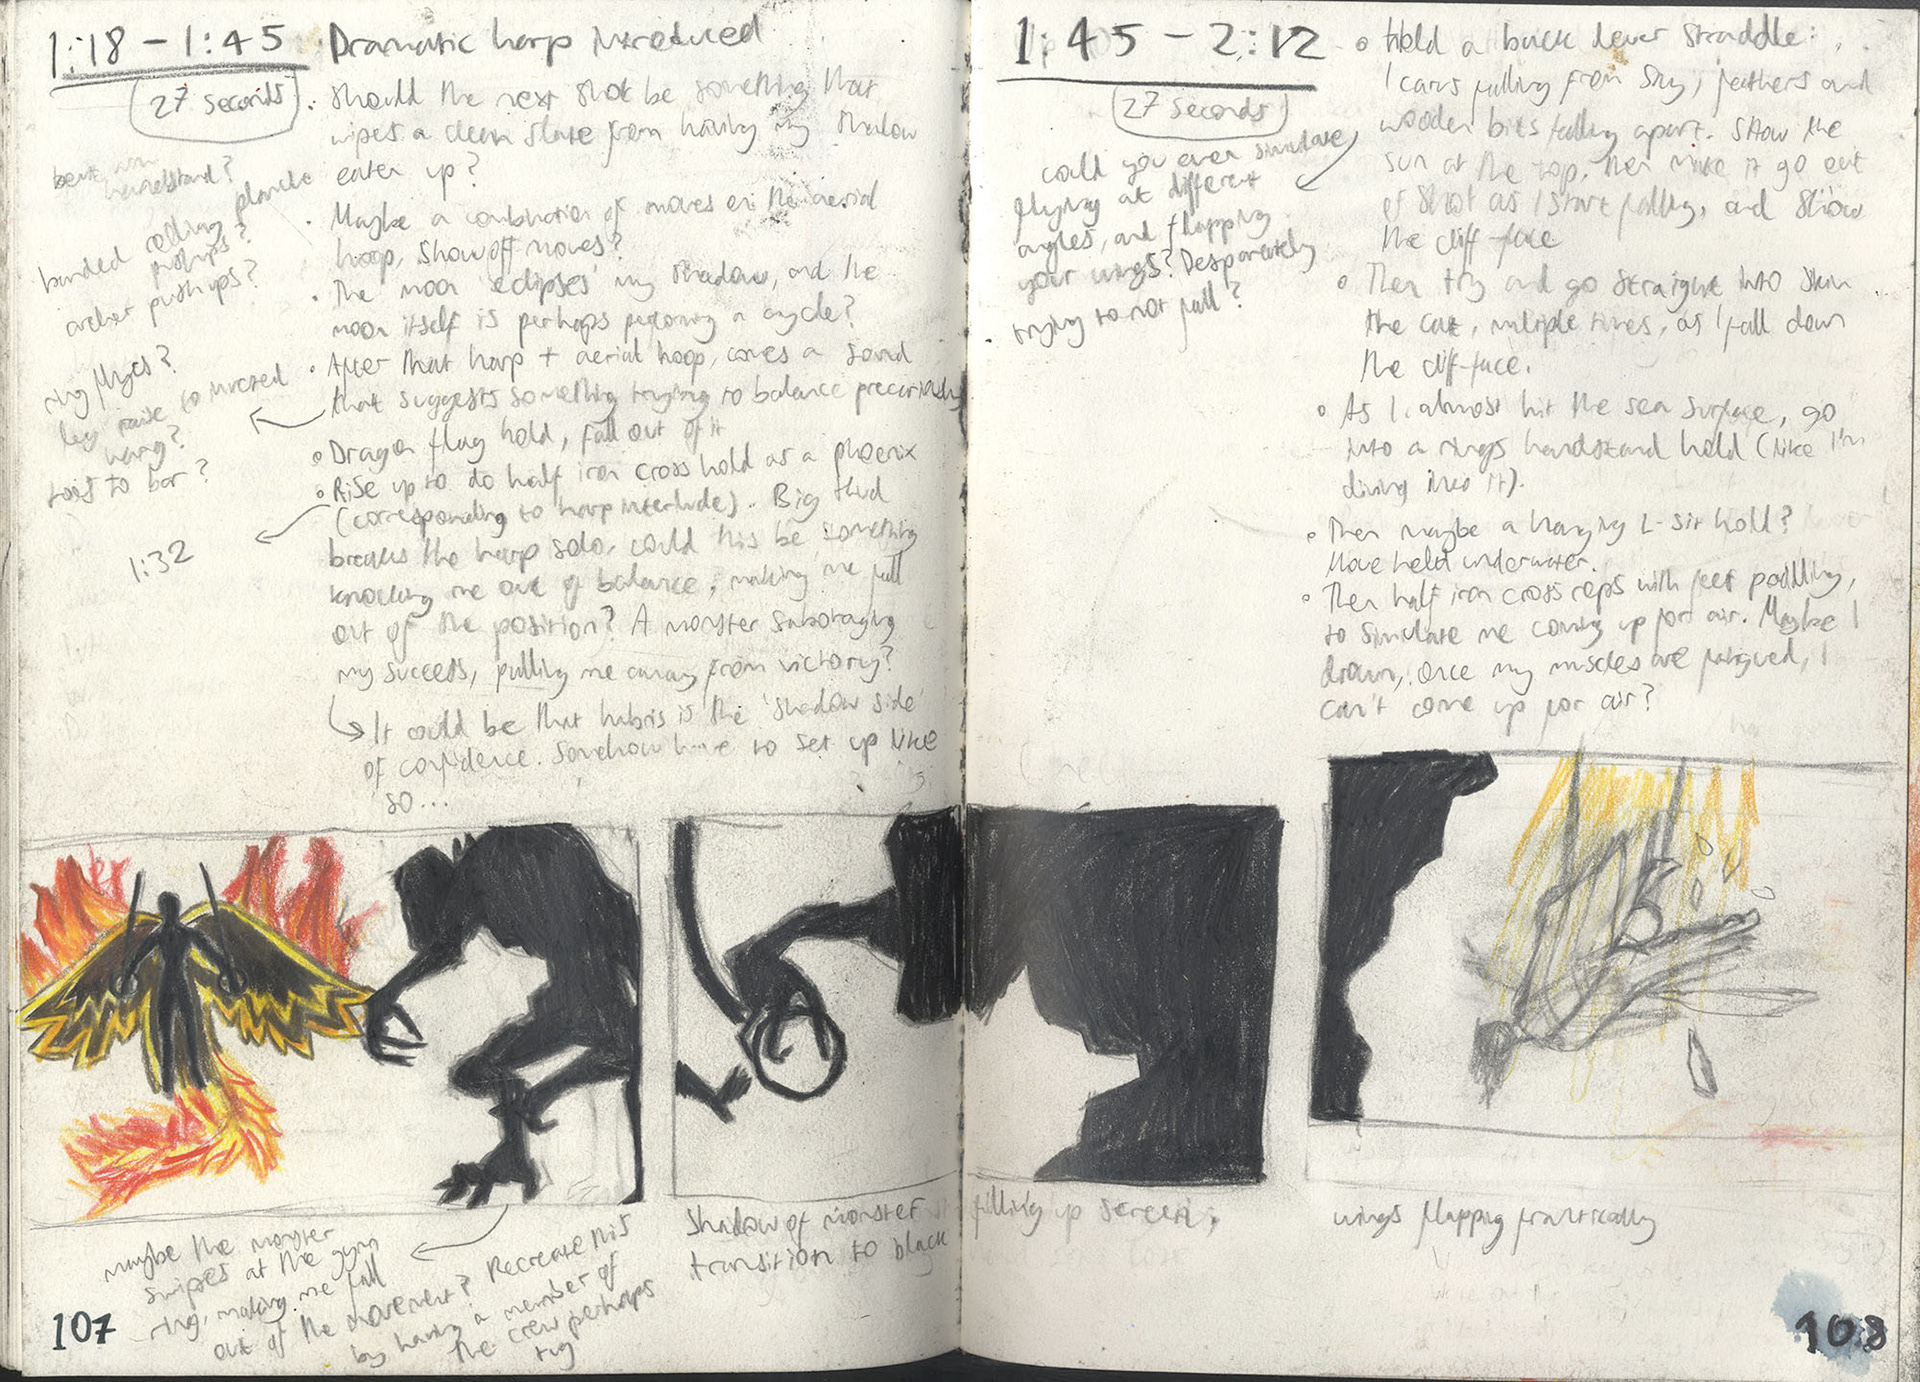 1:18 – 1:45 Dramatic harp introduced
27 seconds
• Should the next shot be something that
wipes a clean slate from having my shadow
eaten up?
• Maybe a combination of moves on the aerial
hoop, show off moves?
• The moon 'eclipses' my shadow, and the
moon itself is perhaps performing a cycle?
• After that harp + aerial hoop, comes a sound
that suggests something trying to balance precariously
o Dragon flag hold, fall out of it
o Rise up to do half iron cross hold as a phoenix
(corresponding to harp interlude). Big thud
breaks the harp solo, could this be something
knocking me out of balance, making me fall
out of the position? A monster sabotaging
my success, pulling me away from victory?
It could be that hubris is the 'shadow side'
of confidence. Somehow have to set up like
so...
bent arm
handstand?
banded rolling planche
pushups?
archer pushups?
ring flyes?
leg raise to inverted
hang?
toes to bar?
1:32
maybe the monster
swipes at the gym
ring, making me fall
out of the movement? Recreate this
by having a member of
the crew perhaps
tug
107
Shadow of monster filling up screen,
transition to black
1:45 – 2:12
27 seconds
could you even simulate
flying at different
angles, and flapping
your wings? Desperately
trying to not fall?
o Hold a back lever straddle:
Icarus falling from sky, feathers and
wooden bits falling apart. Show the
sun at the top, then make it go out
of shot as I start falling, and show
the cliff-face
o Then try and go straight into skin
the cat, multiple times, as I fall down
the cliff-face.
o As I almost hit the sea surface, go
into a rings handstand hold (like I'm
diving into it).
o Then maybe a hanging L-sit hold?
Move held underwater.
o Then half iron cross reps with feet paddling,
to simulate me coming up for air. Maybe I
drown, once my muscles are fatigued, I
can't come up for air?
wings flapping frantically
108